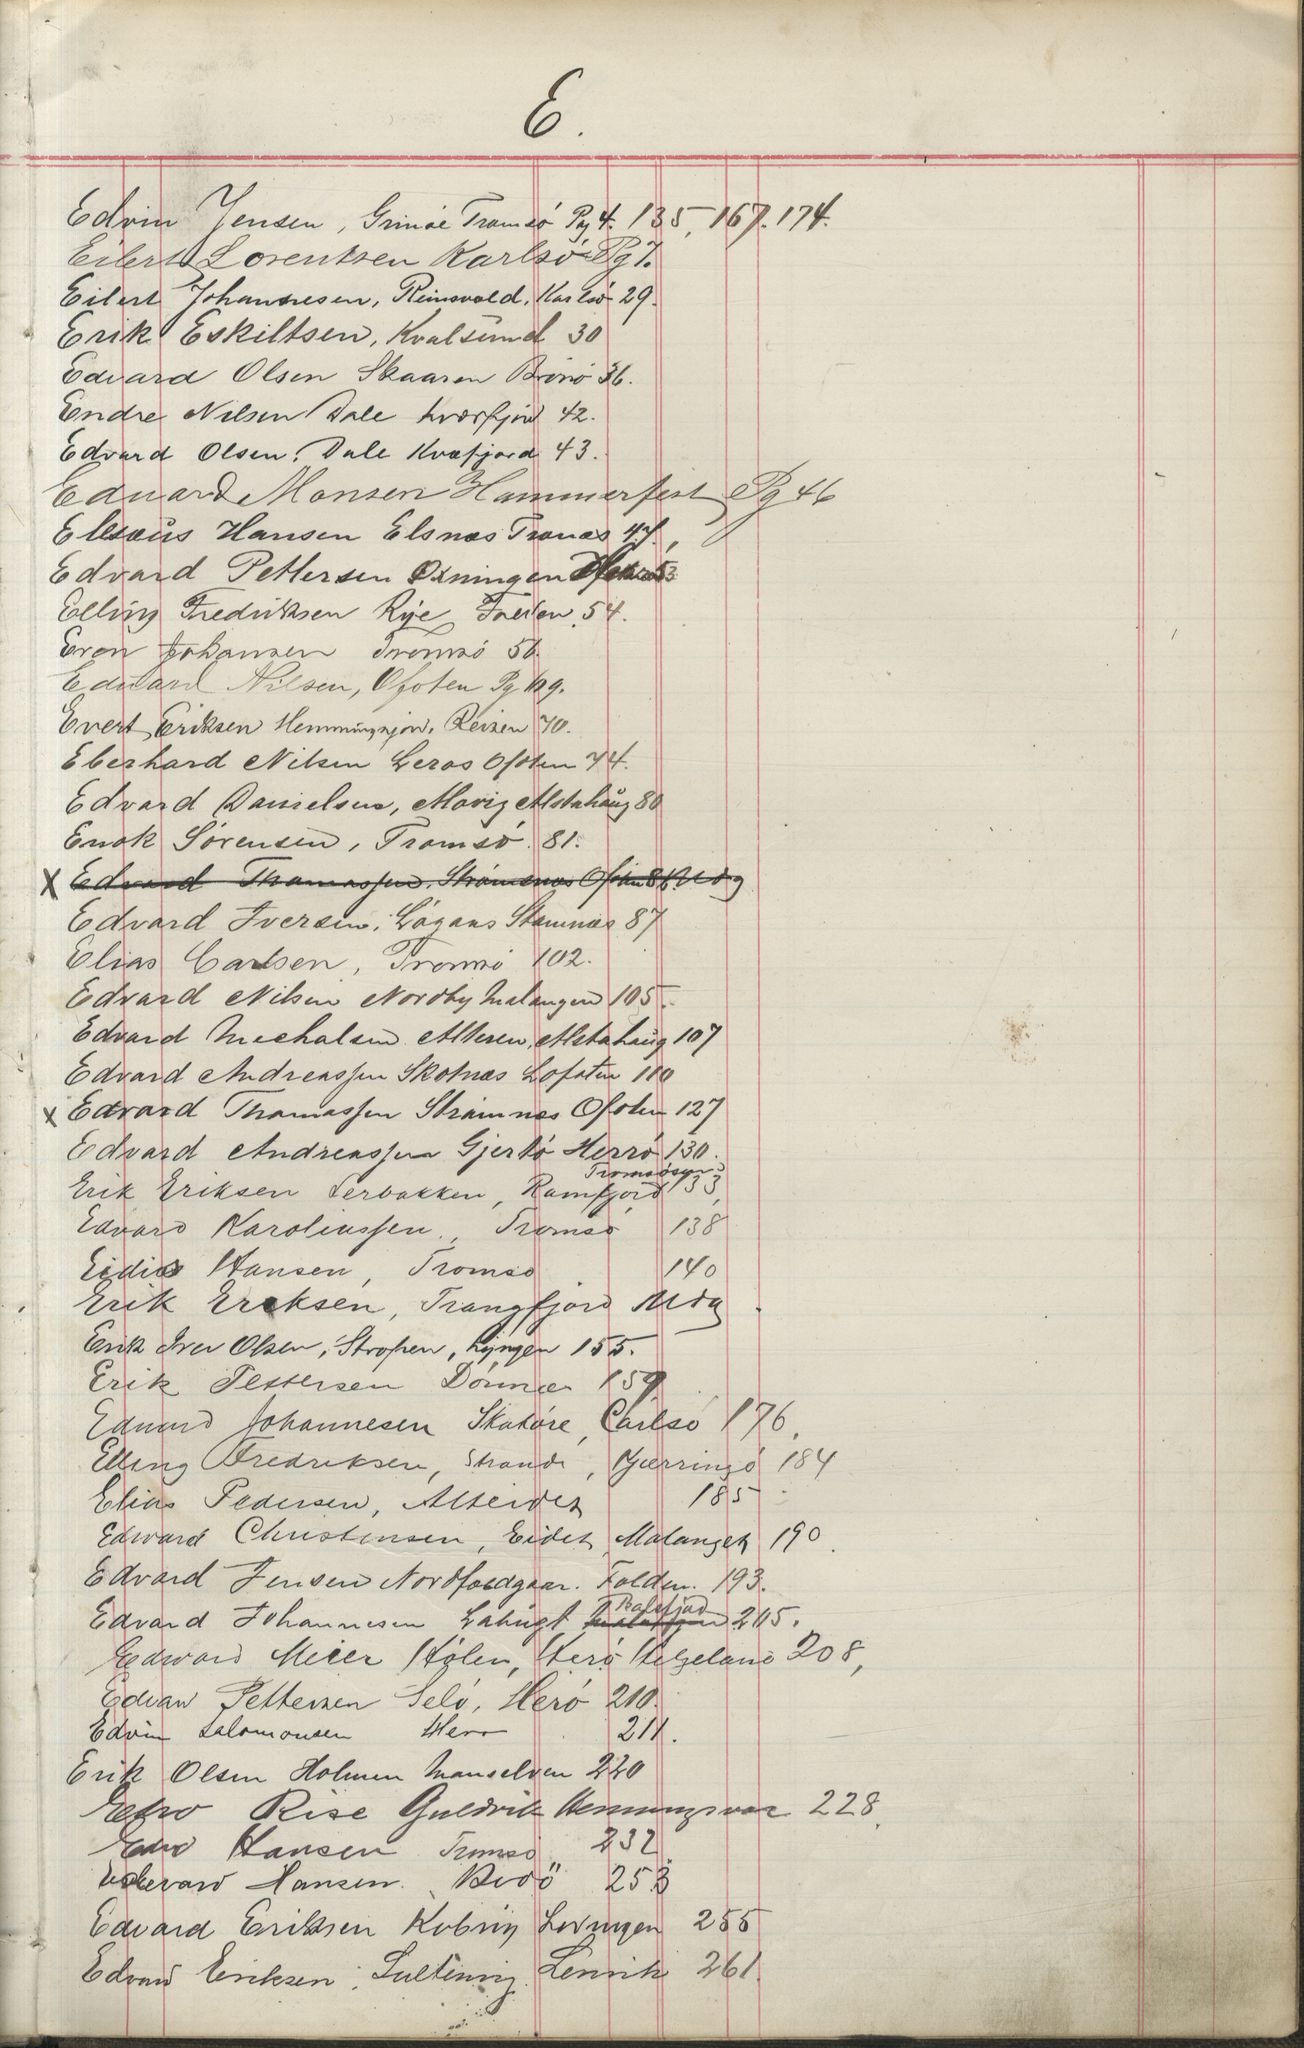 E.
Edvin Jensen, Grinöe Tromsö Pg 4. 135, 167. 174.
Eilert Lorentsen Karlsö Pg 7.
Eilert Johannesen, Reinsvold, Karlsö 29.
Erik Eskiltsen, Kvalsund 30
Edvard Olsen Skaaren Brönö 36.
Endre Nilsen Dale Kværfjord 42.
Edvard Olsen, Dale Kvæfjord 43.
Eduard Monsen Hammerfest Pg 46
Elesæus Hansen Elsnæs Tranæs 47,
Edvard Pettersen Öxningen 53
Elling Fredriksen Rye Folden 54.
Johansen Tromsö 56.
Eduard Nilsen, Ofoten Pg 69.
Evert Eriksen Reisen 70.
Eberhard Nilsen Leros Ofoten 74.
Edvard Danielsen, Movig Alstahaug 80
Enok Sörensen, Tromsö. 81.
X Edvard Thomassen, Strömsnæs Ofoten 86. Udg
Edvard Iversen, Lögaas Stamnæs 87
Elias Carlsen, Tromsö 102.
Edvard Nilsen Nordby Malangen 105.
Edvard Mechalsen Alteren, Alstahaug 107
Edvard Andreassen Skotnæs Lofoten 110
x Edvard Thomassen Strömnæs Ofoten 127
Edvard Andreassen Gjertö Herrö 130.
Erik Eriksen Lerbakken, Ramfjord Tromsösyn 133,
Edvard Karoliussen, Tromsö 138
Eidis Hansen, Tromsö 140
Erik Ereksen, Trangfjord Udg.
Erik Iver Olsen, Stropen, Lyngen 155.
Erik Pettersen Dönnæs 159
Eduard Johannesen Skatöre, Carlsö 176,
Elling Fredriksen, Strandi, Kjerringö 184
Elias Pedersen, Alteidet 185
Edward Christensen, Eidet, Malanget 190.
Edvard Jensen Nordfoldgaar. Folden. 193.
Edvard Johannesen Balsfjord 205.
Edward Meier Hölen, Herö Helgeland 208,
Edvar Pettersen Selö, Herö 210.
Edvin Salomonsen Herö 211.
Erik Olsen Holmen Maaselven 220
Rise Guldvik Henningsvær 228.
Edv Hansen Tromsö 232
Edevard Hansen Bodö 253
Edvard Eriksen Kobvig Lödingen 255
Edvard Eriksen, Lenvik 261.